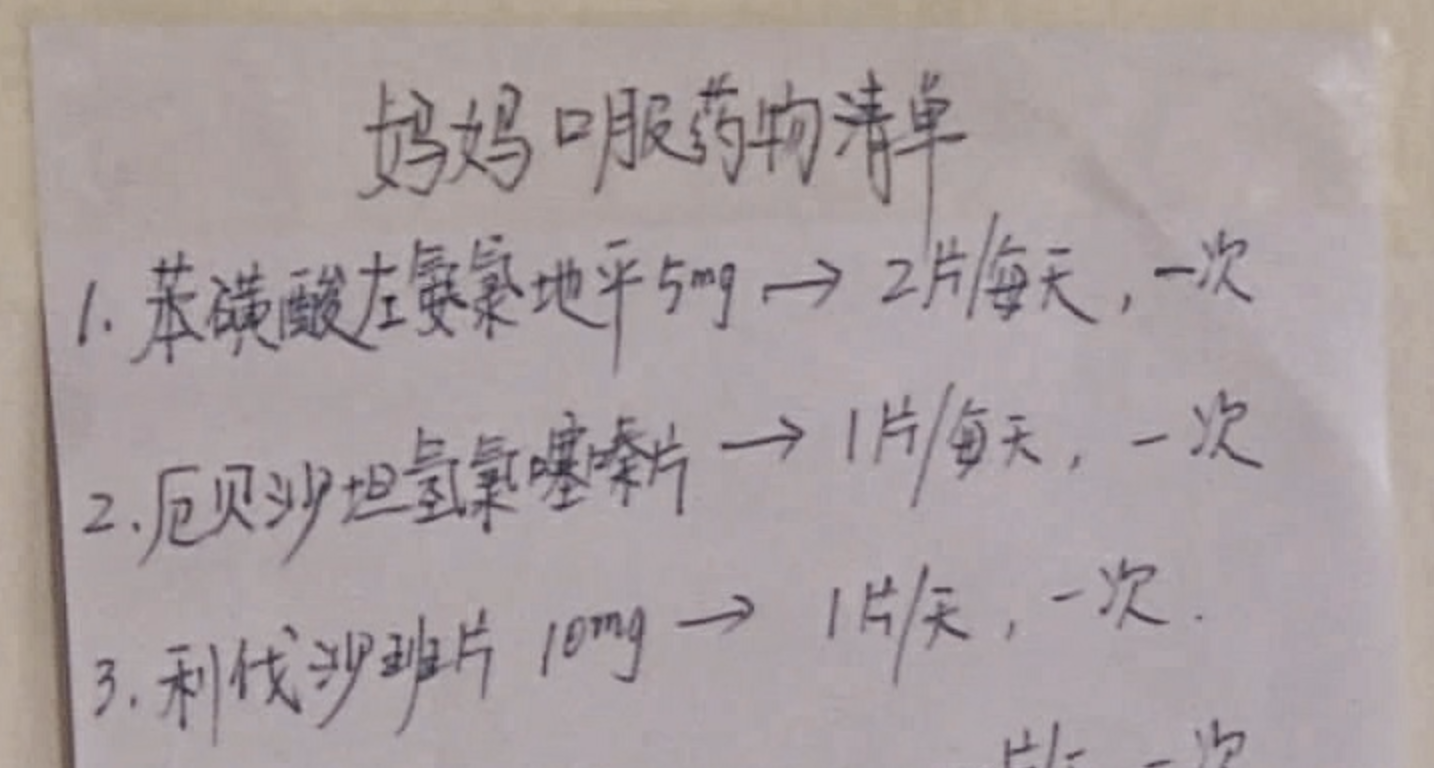 妈妈口服药物清单
1. 苯磺酸左氨氯地平5mg → 2片/每天，一次
2. 厄贝沙坦氢氯噻嗪片 → 1片/每天，一次
3. 利伐沙班片 10mg → 1片/天，一次.